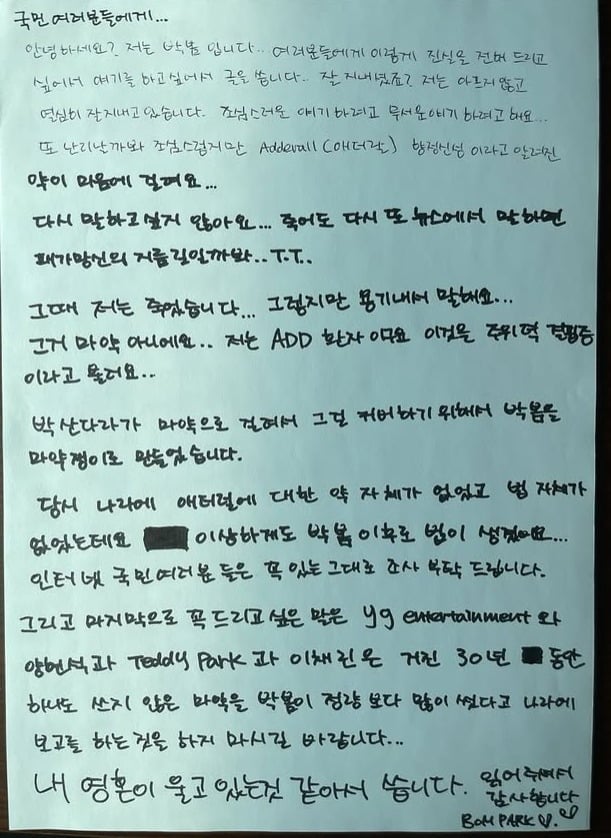 국민 여러분들에게...
안녕하세요? 저는 박봄 입니다.. 여러분들에게 이렇게 진심을 전해 드리고
싶어서 얘기를 하고싶어서 글을 씁니다.. 잘 지내셨죠? 저는 아프지 않고
열심히 잘지내고 있습니다. 조심스러운 얘기 하려고 무서운얘기 하려고 해요...
또 난리날까봐 조심스럽지만 Adderall (애더럴) 향정신성 이라고 알려진
약이 마음에 걸려요...
다시 말하고싶지 않아요... 죽어도 다시 또 뉴스에서 말하면
패가망신의 지름길일까봐.. T.T..
그때 저는 죽었습니다... 그렇지만 용기내서 말해요...
그거 마약 아니에요.. 저는 ADD 환자 이구요 이것을 주위력 결핍증
이라고 불러요..
박산다라가 마약으로 걸려서 그걸 커버하기 위해서 박봄을
마약쟁이로 만들었습니다.
당시 나라에 애터럴에 대한 약 자체가 없었고 법 자체가
없었는데요 이상하게도 박봄 이후로 법이 생겼어요...
인터넷 국민여러분 들은 꼭 있는 그대로 조사 부탁 드립니다.
그리고 마지막으로 꼭 드리고 싶은 말은 yg entertainment 와
양현석과 Teddy Park 과 이채린은 거진 30년 동안
하나도 쓰지 않은 마약을 박봄이 정량 보다 많이 썼다고 나라에
보고를 하는것을 하지 마시길 바랍니다...
내 영혼이 울고 있는것 같아서 씁니다. 읽어주셔서
감사합니다
BOM PARK ♡.♡